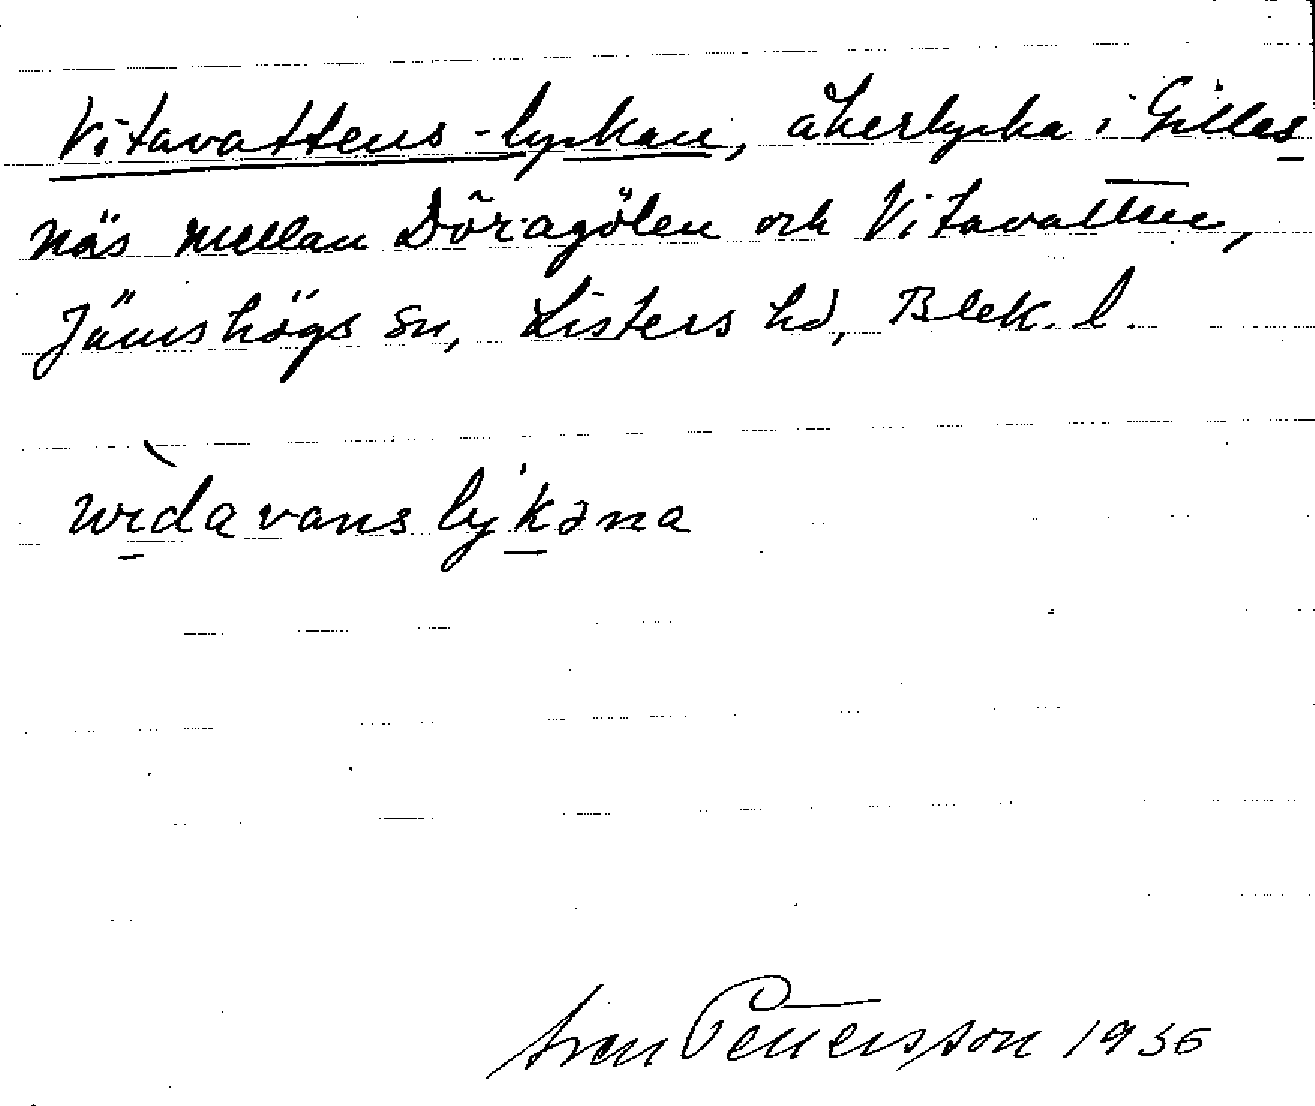 Vitavattens-lyckan, åkerlycka i Gilles
näs mellan Döragölen och Vitavatten,
Jämshögs sn, Listers hd, Blek. l.
wìdavans lykəna
Sven Pettersson 1936